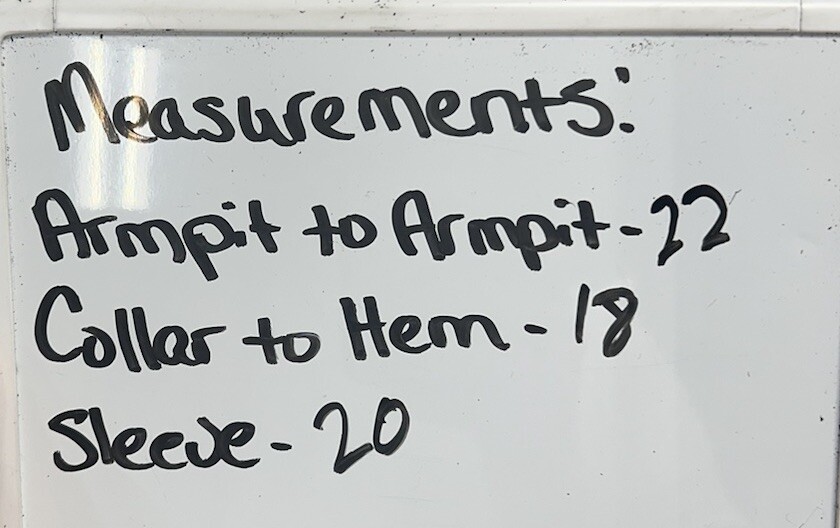 Measurements:
Armpit to Armpit - 22
Collar to Hem - 18
Sleeve - 20